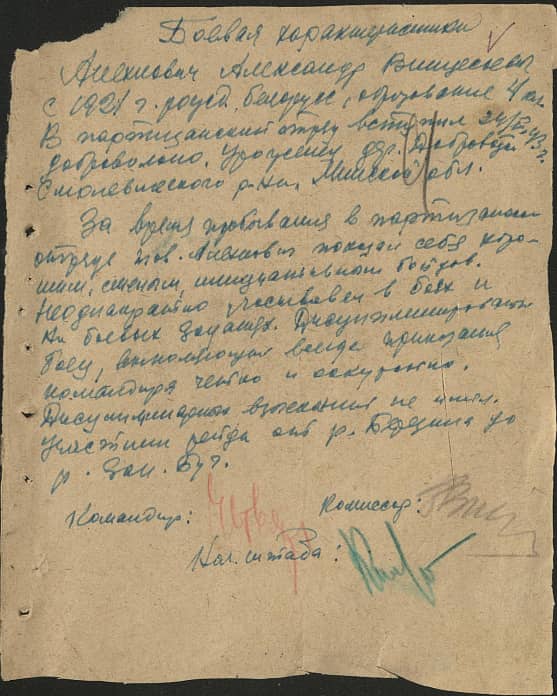 Боевая характеристика
Алехнович Александр Викентьевич
с 1921 г. рожд. белорус, образование 4 кл.
В партизанский отряд вступил 24/
добровольно. Уроженец дер.
Смолевичского р-на, Минской обл.
За время пребывания в партизанском
отряде тов. Алехнович показал себя хоро-
шим, смелым, инициативным бойцом.
Неоднократно участвовал в боях и
на боевых заданиях. Дисциплинированный
боец, выполняющий всегда приказания
командира четко и аккуратно.
Дисциплинарных взысканий не имел.
Участник рейда от р. Березина до
р. Зап. Буг.
Командир:
Комиссар:
Нач. штаба: